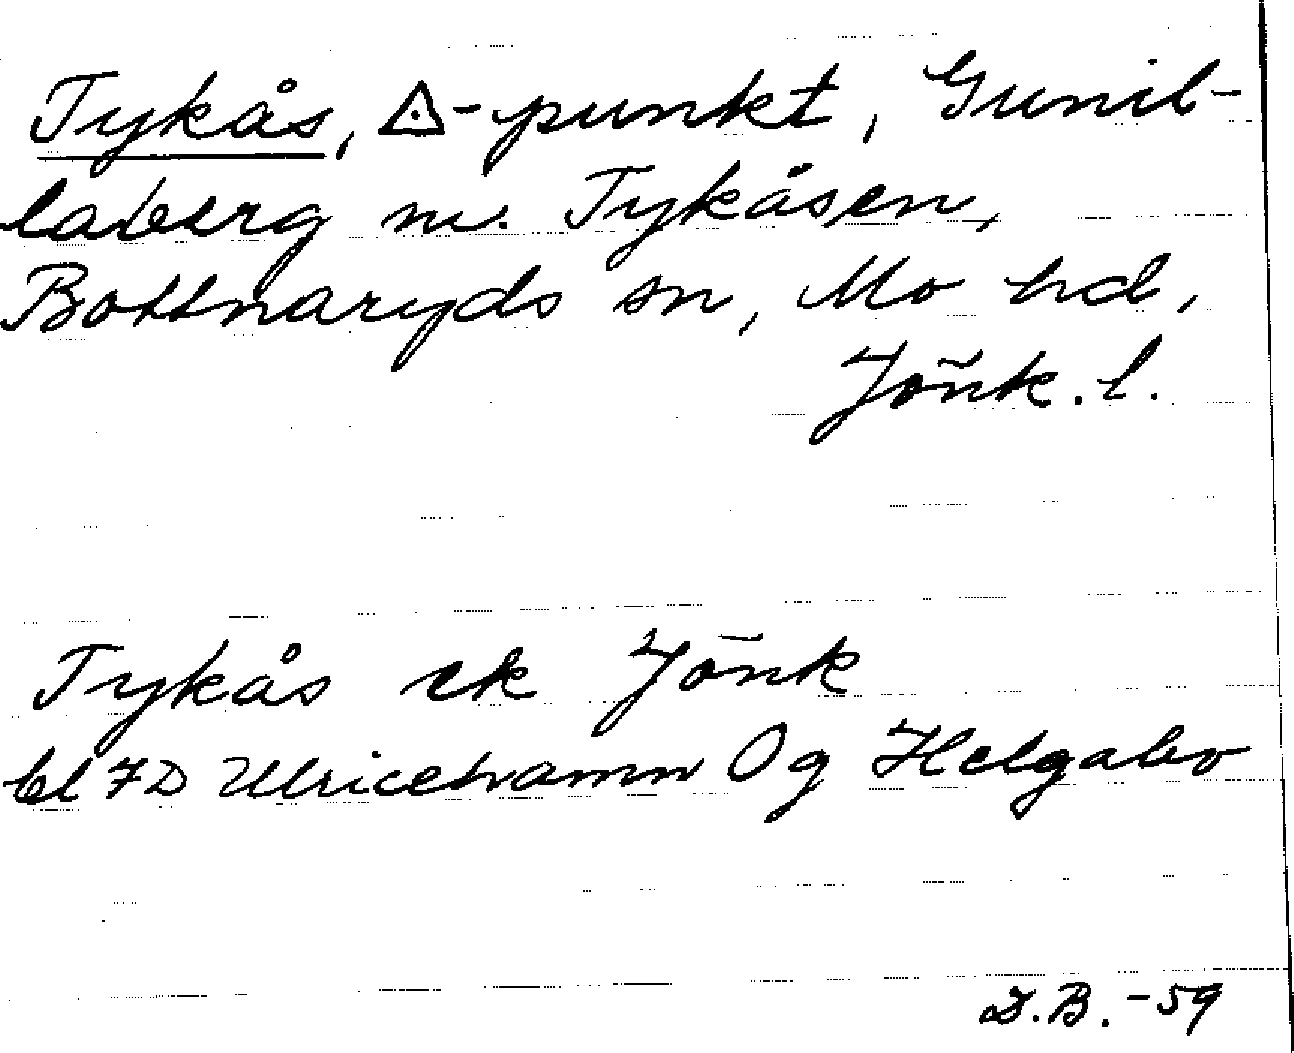 Tykås, △-punkt, Gunil-
laberg m. Tykåsen,
Bottnaryds sn, Mo hd,
Jönk. l.
Tykås ek Jönk
bl 7D Ulricehamn Og Helgabo
I.B. -59